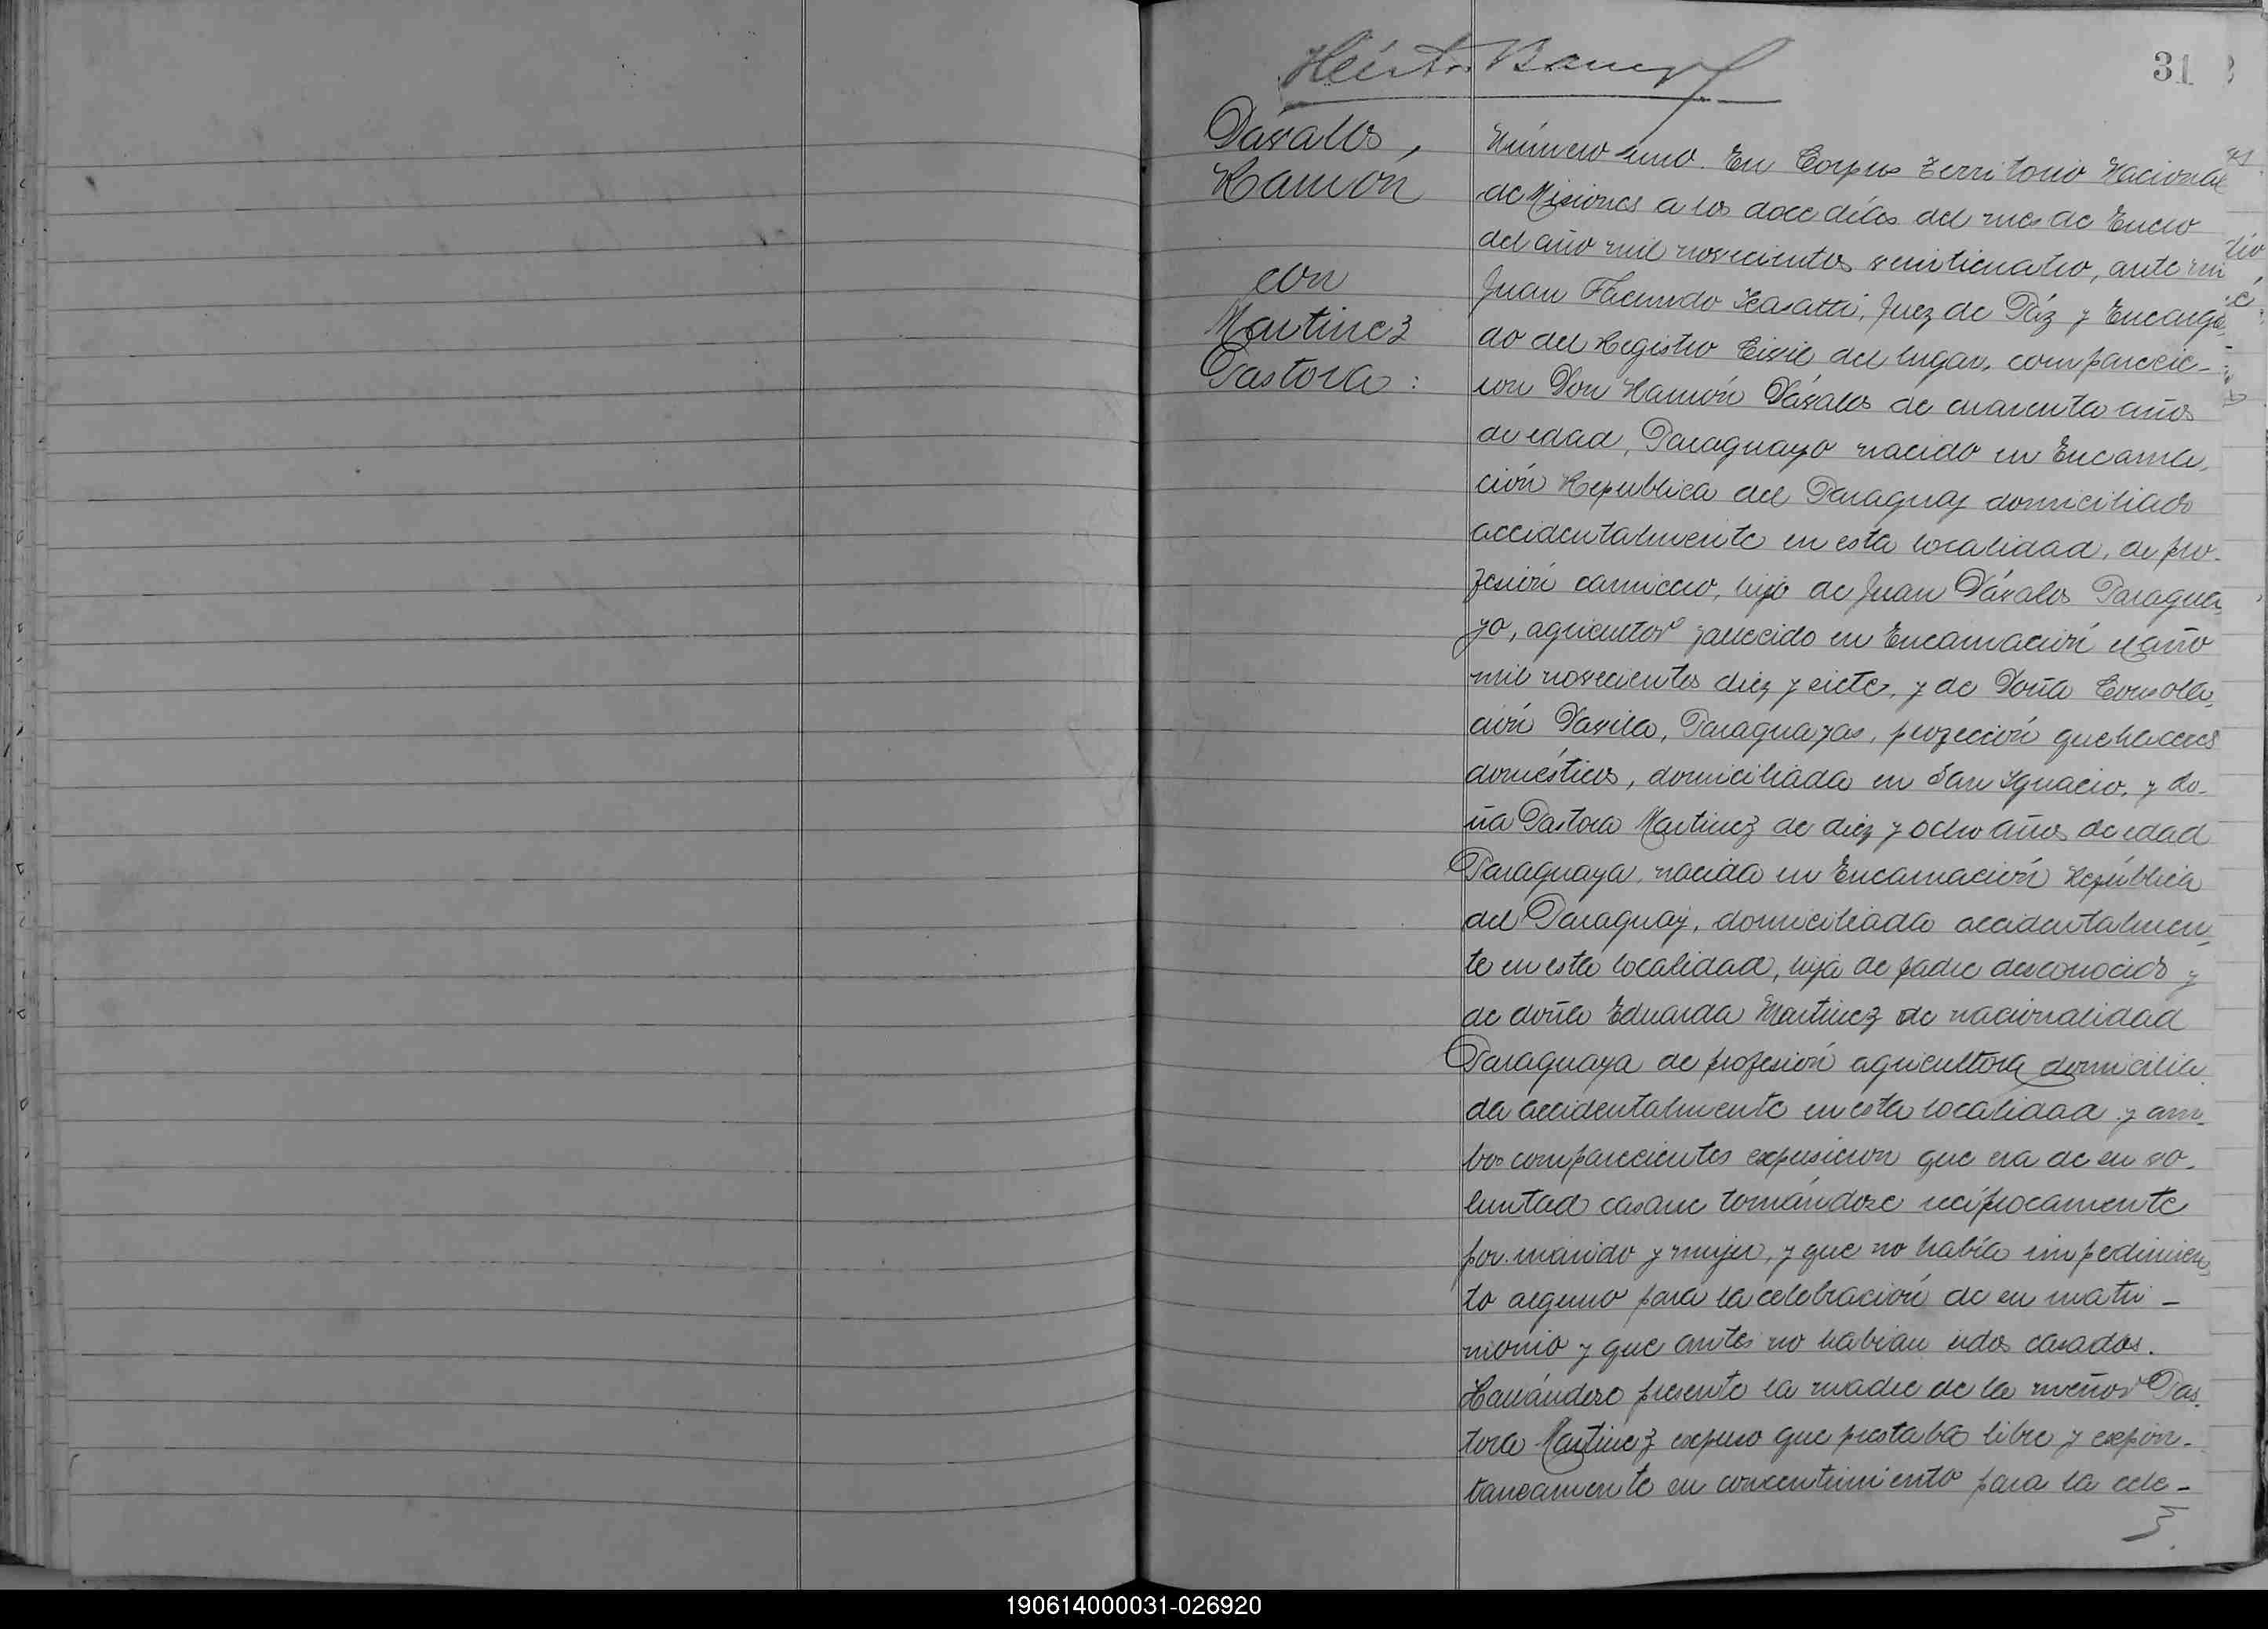 Héctor
31
Dávalos,
Ramón
con
Martinez
Pastora:
Número uno. En Corpus Territorio Nacional
de Misiones a los doce días del mes de Enero
del año mil novecientos veinticuatro, ante mi
Juan Facundo Casatti, Juez de Páz y Encarga
do del Registro Civil del lugar, comparecie-
ron Don Ramón Dávalos de cuarenta años
de edad, Paraguayo nacido en Encarna,
ción Republica del Paraguay domiciliado
accidentalmente en esta localidad, de pro-
fesión carnicero, hijo de Juan Dávalos Paragua,
yo, agricultor fallecido en Encarnación el año
mil novecientos diez y siete, y de Doña Consola,
ción Davila, Paraguayas, profección quehaceres
domésticos, domiciliada en San Ignacio, y do-
ña Pastora Martinez de diez y ocho años de edad
Paraguaya, nacida en Encarnación República
del Paraguay, domiciliada accidentalmen,
te en esta localidad, hija de padre desconocido y
de doña Eduarda Martinez de nacionalidad
Paraguaya de profesión agricultora domicilia
da accidentalmente en esta localidad y am-
bos comparecientes expusieron que era de su vo-
luntad casarse tomándose recíprocamente
por marido y mujer, y que no había impedimien,
to alguno para la celebración de su matri-
monio y que antes no habian sidos casados.
Hallándose presente la madre de la menor Pas,
tora Martinez expuso que prestaba libre y expon-
taneamente su concentimiento para la cele-